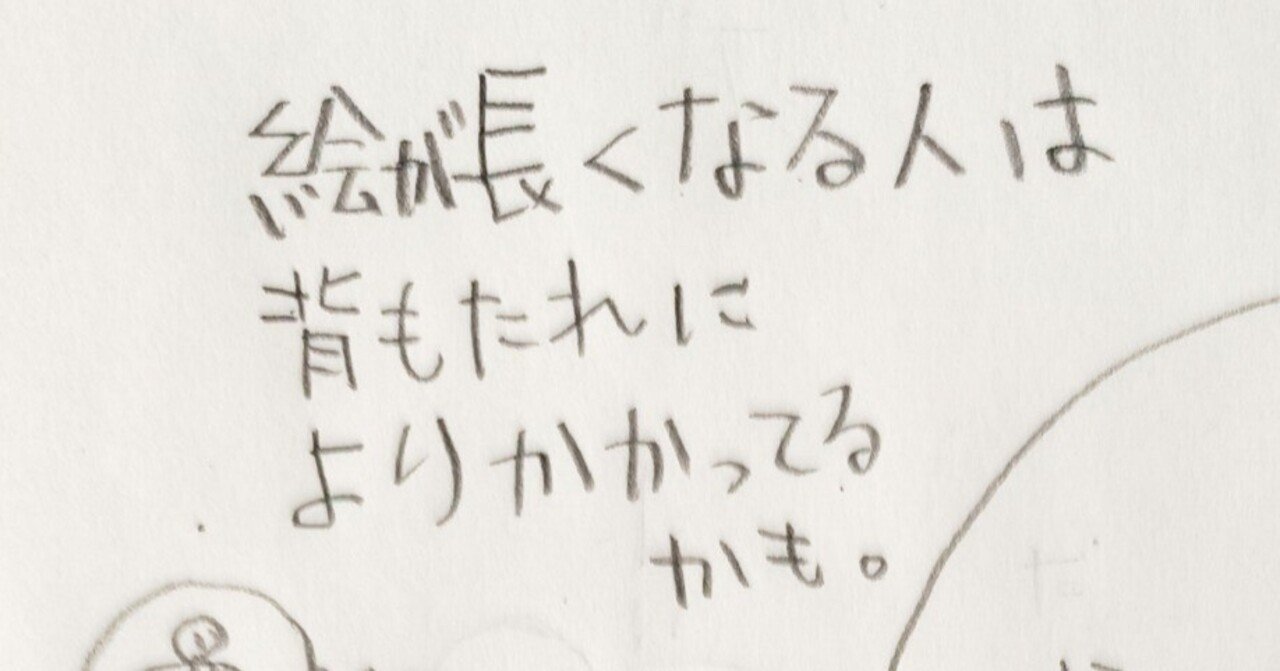 絵が長くなる人は
背もたれに
よりかかってる
かも。